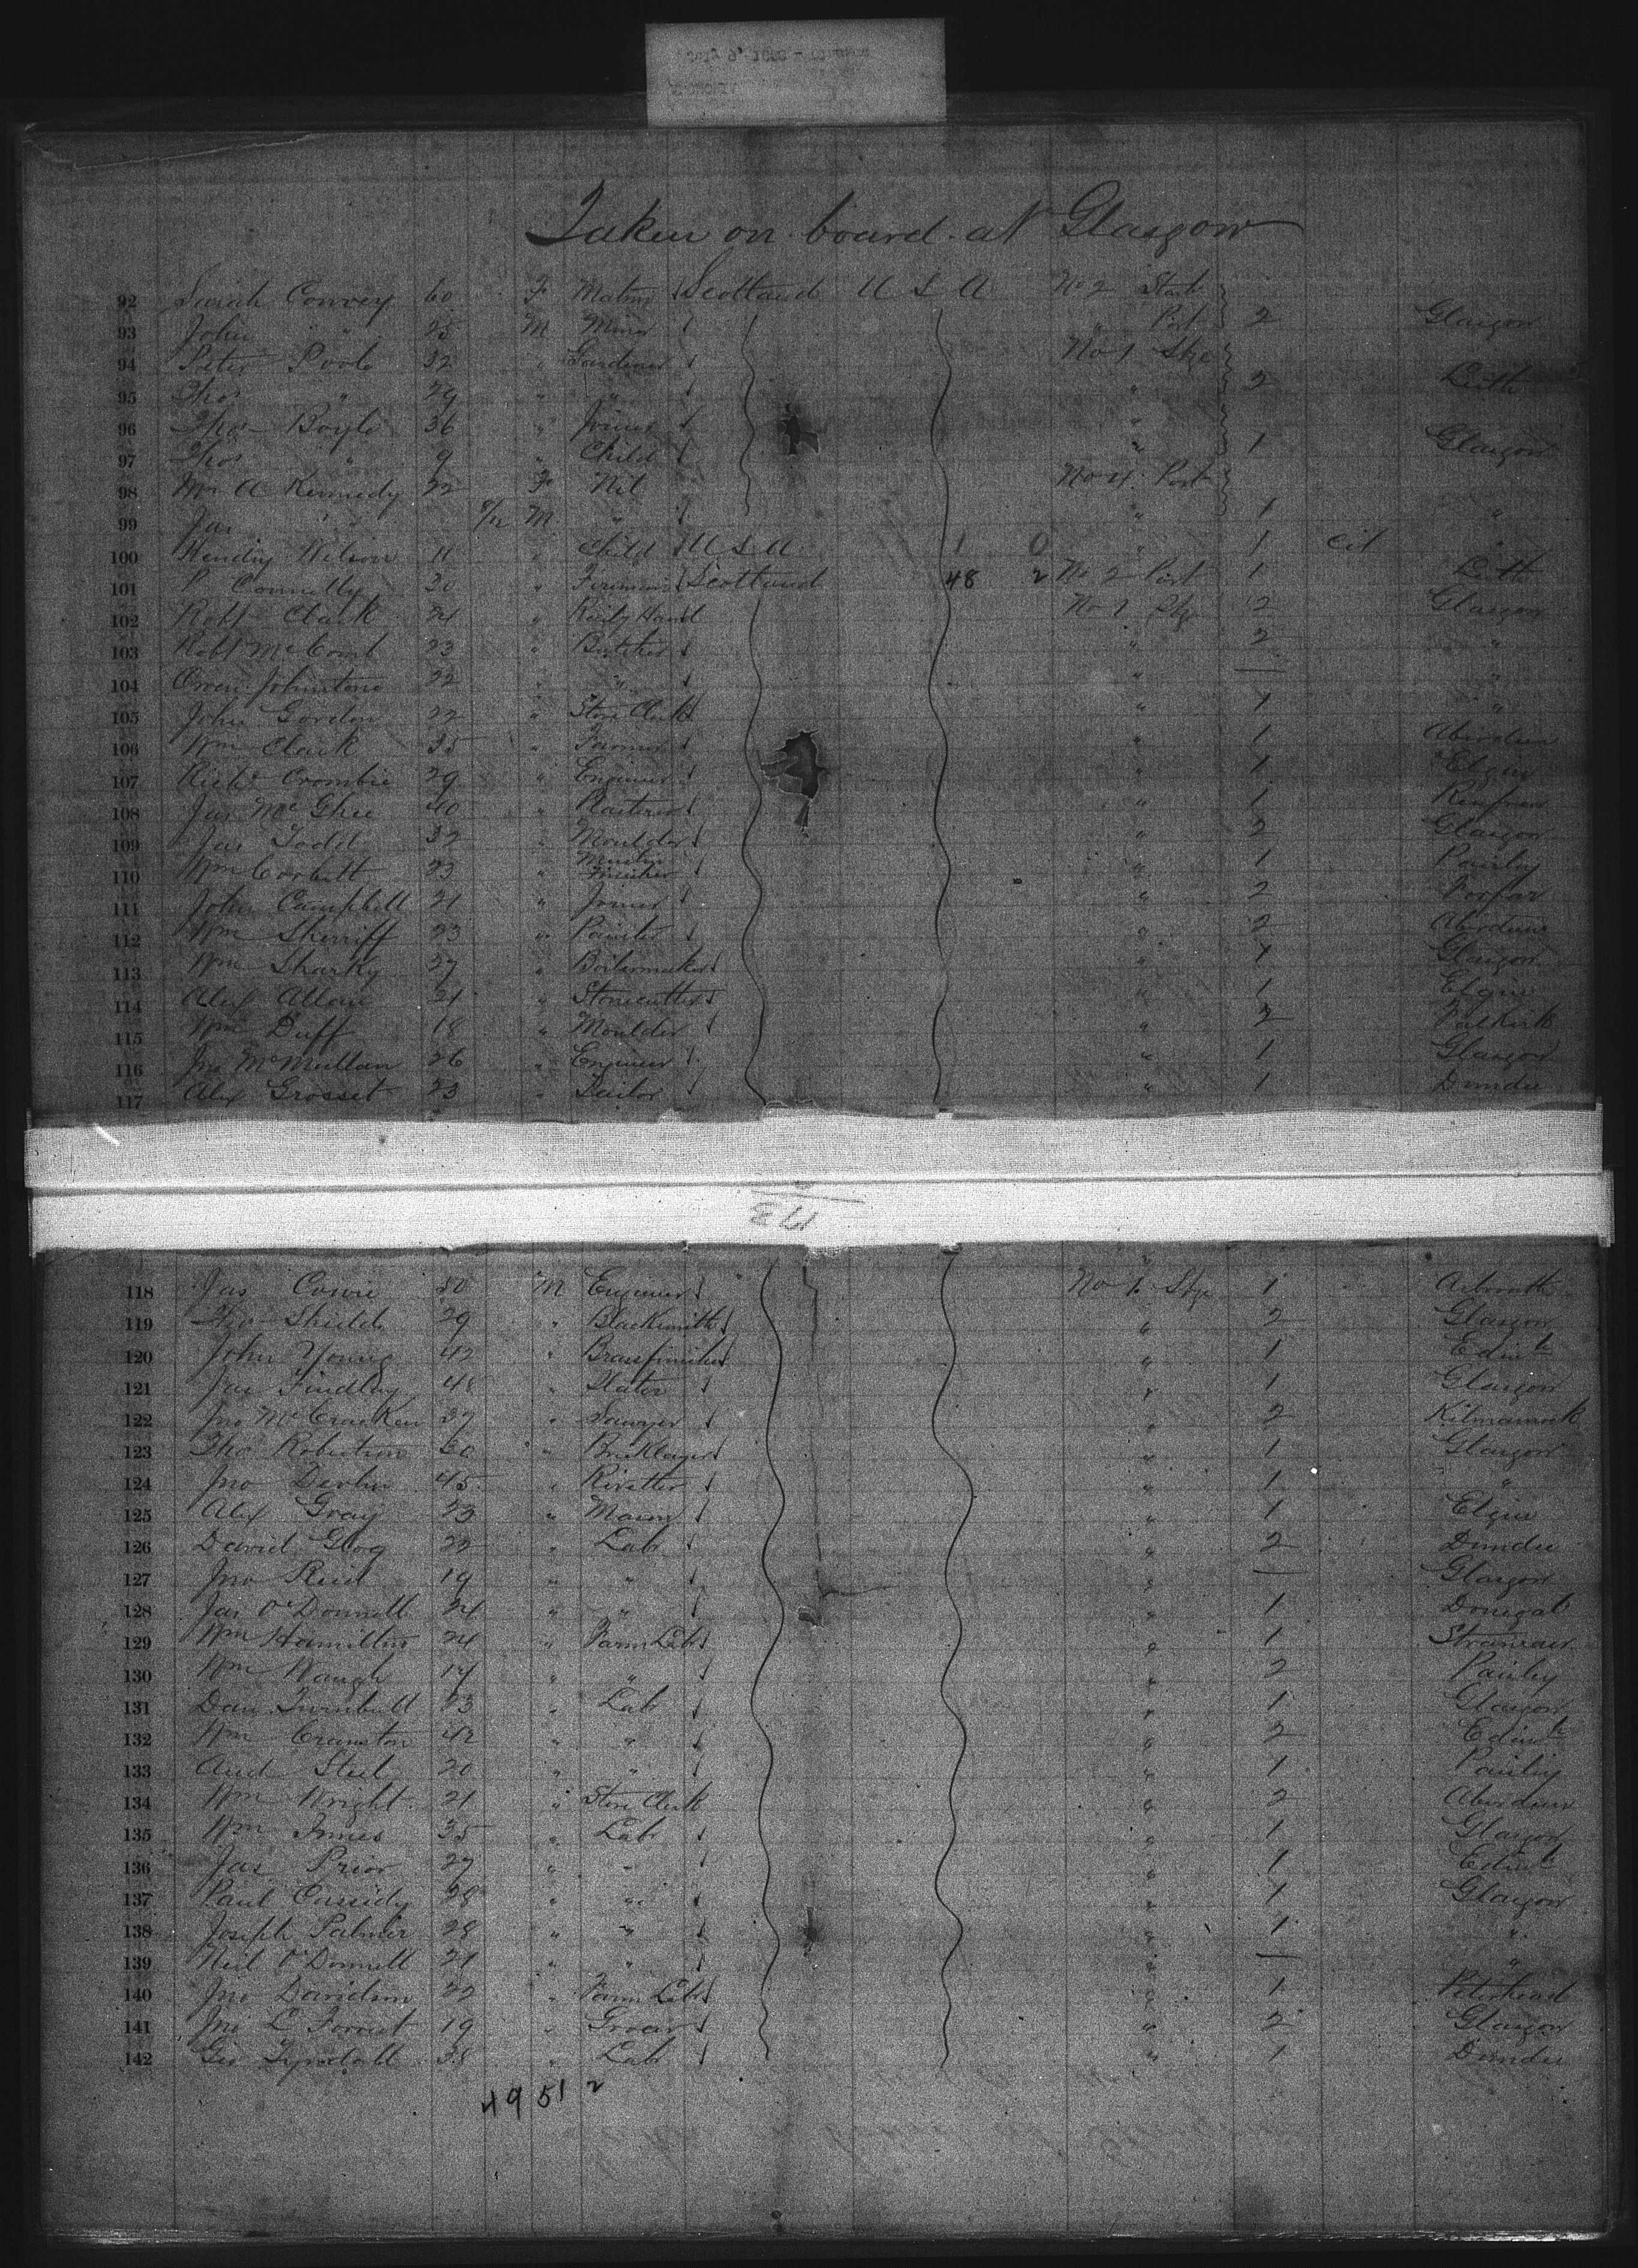 Taken on board at Glasgow
92 Sarah Convey 60 F Matron Scotland U S A No 2 Starb
93 John " 25 M Miner Port 2 Glasgow
94 Peter Poole 32 " Gardener No 1 Stge
95 Thos " 29 " " " 2 Leith
96 Thos Boyle 36 " Joiner "
97 Thos " 9 " Child " 1 Glasgow
98 Mrs A Kennedy 22 F Nil No 4 Port
99 Jas " /12 M " " 1 "
100 Wilson 11 " Child U S A 1 0 " 1 cit "
101 P Connelly 30 " Fireman Scotland 48 2 No 2 Port 1 Leith
102 Robt Clark 24 " Hand No 1 Stge 2 Glasgow
103 Robt McComb 23 " Butcher " 2 "
104 Owen Johnstone 22 " " " — "
105 John Gordon 22 " Store Clerk " 1 "
106 Wm Clark 35 " Farmer " 1 Aberdeen
107 Richd Crombie 29 " Engineer " 1 Elgin
108 Jas McGhee 40 " Plasterer " 1 Renfrew
109 Jas Todd 32 " Moulder " 2 Glasgow
110 Wm Corbett 23 " " 1 Paisley
111 John Campbell 21 " Joiner " 2 Forfar
112 Wm Sherriff 23 " Painter " 2 Aberdeen
113 Wm Sharky 27 " Boilermaker " 1 Glasgow
114 Alex Allan 21 " Stonecutter " 1 Elgin
115 Wm Duff 18 " Moulder " 2 Falkirk
116 Jno McMullan 26 " Engineer " 1 Glasgow
117 Alex Grosset 23 " Tailor " 1 Dundee
118 Jas Cowie 30 M Engineer No 1 Stge 1 Arbroath
119 Shields 29 " Blacksmith " 2 Glasgow
120 John Young 42 " Brassfinisher " 1 Edinb
121 Jas Findlay 48 " Slater " 1 Glasgow
122 Jno McCracken 37 " Sawyer " 2 Kilmarnock
123 Thos Robertson 60 " Bricklayer " 1 Glasgow
124 Jno Devlin 45 " Rivetter " 1 "
125 Alex Gray 23 " Mason " 1 Elgin
126 David Glog 22 " Lab " 2 Dundee
127 Jno Reid 19 " " " — Glasgow
128 Jas O'Donnell 24 " " " 1 Donegal
129 Wm Hamilton 24 " Farm Lab " 1 Stranraer
130 Wm Waugh 17 " " " 2 Paisley
131 Dan Turnbull 23 " Lab " 1 Glasgow
132 Wm Cranston 42 " " " 2 Edinb
133 And Steel 20 " " " 1 Paisley
134 Wm Wright 21 " Store Clerk " 2 Aberdeen
135 Wm Innes 35 " Lab " 1 Glasgow
136 Jas Prior 27 " " " 1 Edinb
137 Paul Cassidy 28 " " " 1 Glasgow
138 Joseph Palmer 28 " " " 1 "
139 Neil O'Donnell 21 " " " — "
140 Jno Davidson 22 " Farm Lab " 1 Peterhead
141 Jno L Forrest 19 " Grocer " 2 Glasgow
142 Geo Tyndall 38 " Lab " 1 Dundee
49 51 2